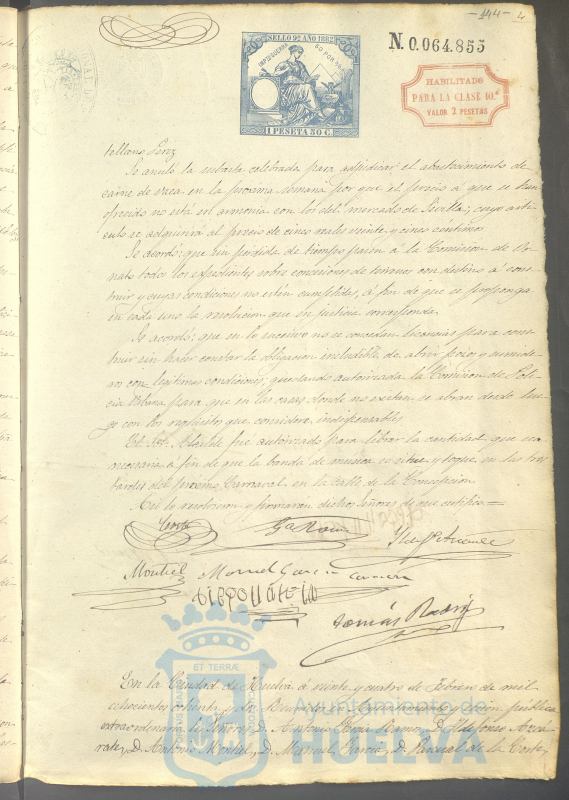 -144- 4
SELLO 9º AÑO 1882
N. 0.064.855
IMPTO GUERRA 50 POR %
HABILITADO
PARA LA CLASE 10.ª
VALOR 2 PESETAS
1 PESETA 50 C.
tellano Perez
Se anuló la subasta celebrada para adjudicar el abastecimiento de
carne de vaca en la procsima semana por que el precio á que se han
ofrecido no está en armonia con los del mercado de Sevilla; cuyo arti-
culo se adquirirá al precio de cinco reales veinte y cinco centimos
Se acordó: que sin pérdida de tiempo pasen á la Comision de Or-
nato todos los expedientes sobre concesiones de terrenos con destino á cons-
truir y cuyas condiciones no estén cumplidas, á fin de que se proponga
en cada uno la resolucion que en justicia corresponda
Se acordó: que en lo sucesivo no se concedan licencias para cons-
truir sin hacer constar la obligacion ineludible de abrir pozos y sumide-
ros con legitimas condiciones; quedando autorizada la Comision de Poli-
cia Urbana para que en las casas donde no existan se abran desde lue-
go con los requisitos que considere indispensables
El Sr. Alcalde fué autorizado para librar la cantidad que sea
necesaria á fin de que la banda de musica se situe y toque en las tres
tardes del procsimo Carnaval en la calle de la Concepcion
Asi lo resolvieron y firmaron dichos Señores de que certifico=
Corte
Montiel Manuel Garcia
Tomás
En la Ciudad de Huelva á veinte y cuatro de Febrero de mil
ochocientos ochenta y dos. Reunidos en Cabildo y sesion publica
extraordinaria los Señores, D. Antonio Garcia Ramos, D. Ildefonso Arcá-
rate, D. Antonio Montiel, D. Manuel Garcia, D. Pascual de la Corte,
ET TERRÆ
Ayuntamiento de
HUELVA